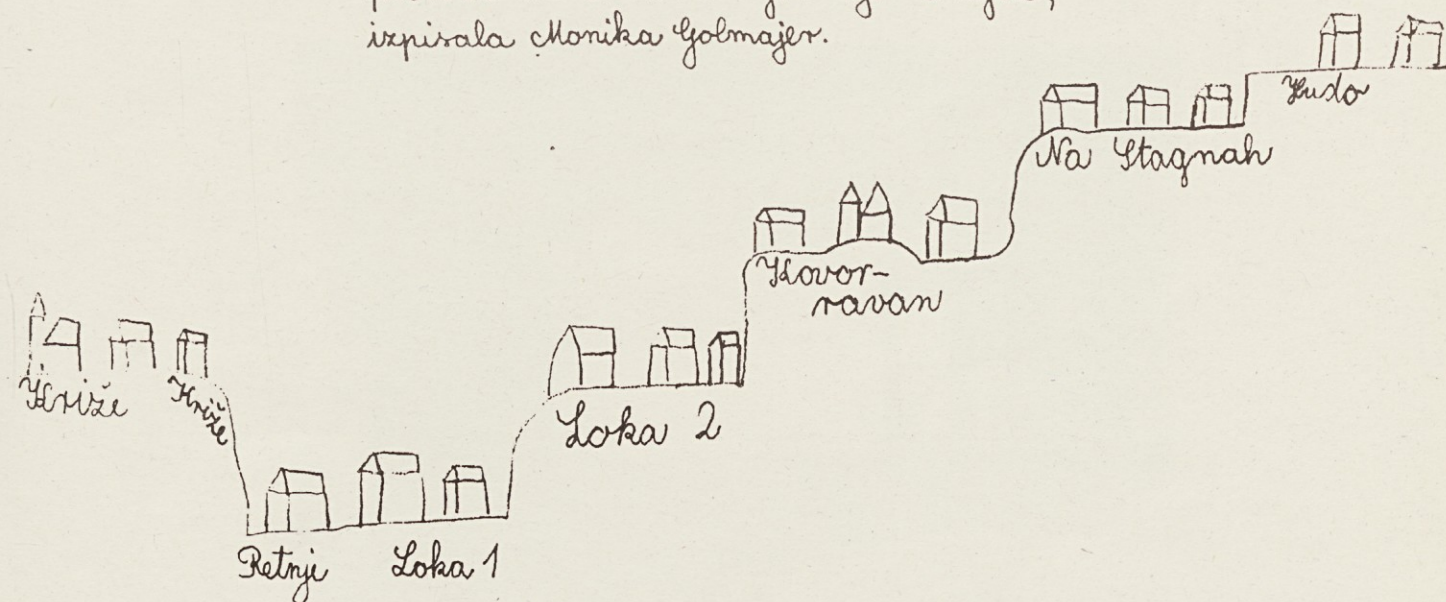 izpisala Monika Golmajer.
Hudo
Na Stagnah
Kovor-
ravan
Križe
Križe
Loka 2
Retnje
Loka 1